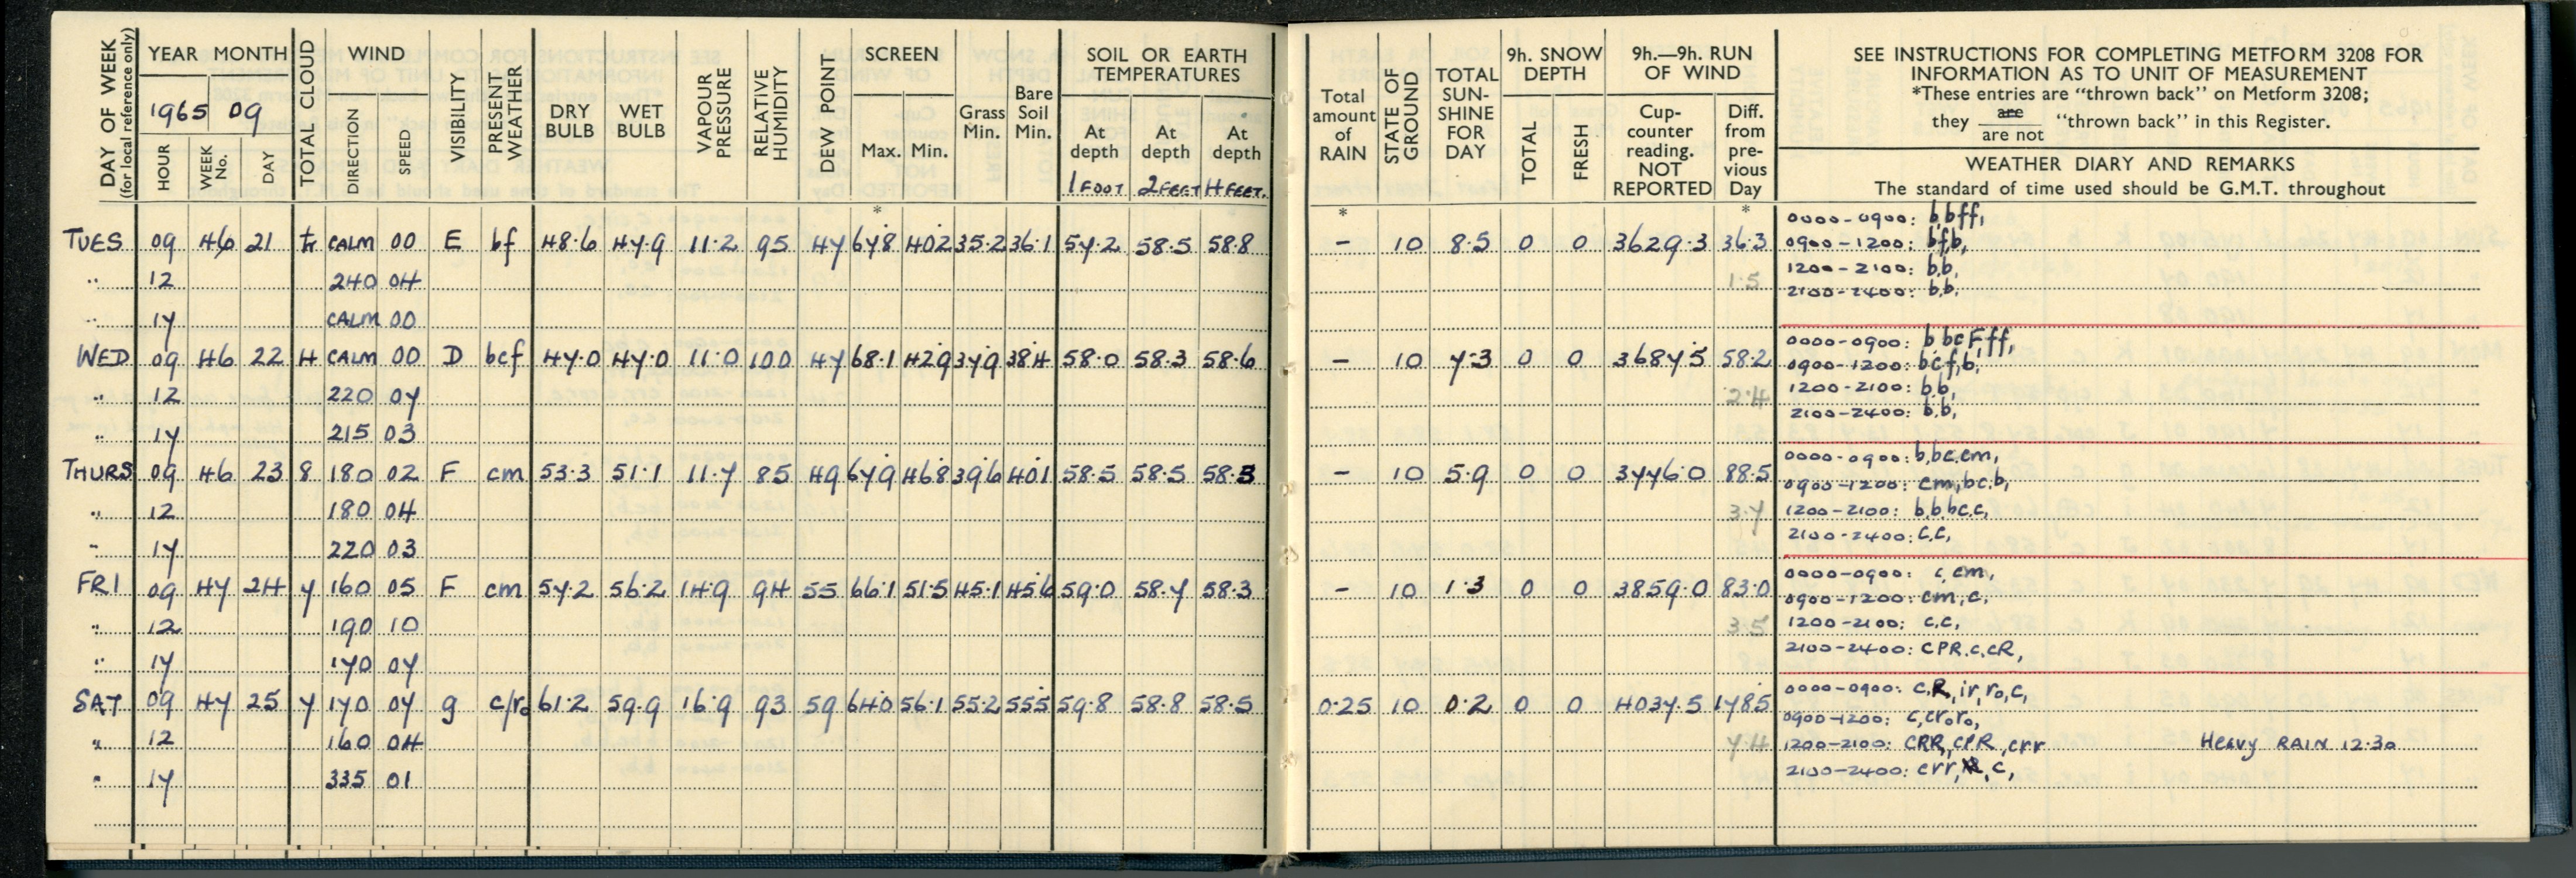 DAY OF WEEK
(for local reference only)
YEAR MONTH
1965 09
HOUR
WEEK No.
DAY
TOTAL CLOUD
WIND
DIRECTION
SPEED
VISIBILITY
PRESENT WEATHER
DRY BULB
WET BULB
VAPOUR PRESSURE
RELATIVE HUMIDITY
DEW POINT
SCREEN
Max. Min.
*
Grass Min.
Bare Soil Min.
SOIL OR EARTH TEMPERATURES
At depth 1 FOOT
At depth 2 FEET
At depth 4 FEET.
Total amount of RAIN
*
STATE OF GROUND
TOTAL SUN-SHINE FOR DAY
9h. SNOW DEPTH
TOTAL
FRESH
9h.—9h. RUN OF WIND
Cup-counter reading. NOT REPORTED
Diff. from pre-vious Day
*
SEE INSTRUCTIONS FOR COMPLETING METFORM 3208 FOR
INFORMATION AS TO UNIT OF MEASUREMENT
*These entries are "thrown back" on Metform 3208;
they are / are not "thrown back" in this Register.
WEATHER DIARY AND REMARKS
The standard of time used should be G.M.T. throughout
TUES 09 46 21 tr CALM 00 E bf 48.6 47.9 11.2 95 47 67.8 40.2 35.2 36.1 57.2 58.5 58.8 – 10 8.5 0 0 3629.3 36.3
0000-0900: b,bff,
0900-1200: bf,b,
" 12 240 04 1.5
1200-2100: b,b,
2100-2400: b,b,
" 17 CALM 00
WED 09 46 22 4 CALM 00 D bcf 47.0 47.0 11.0 100 47 68.1 42.9 37.9 38.4 58.0 58.3 58.6 – 10 7.3 0 0 3687.5 58.2
0000-0900: b bcF,ff,
0900-1200: bcf,b,
" 12 220 07 2.4
1200-2100: b,b,
2100-2400: b,b,
" 17 215 03
THURS 09 46 23 8 180 02 F cm 53.3 51.1 11.7 85 49 67.9 46.8 39.6 40.1 58.5 58.5 58.5 – 10 5.9 0 0 3776.0 88.5
0000-0900: b,bc,cm,
0900-1200: cm,bc,b,
" 12 180 04 3.7
1200-2100: b,b,bc,c,
2100-2400: c,c,
" 17 220 03
FRI 09 47 24 7 160 05 F cm 57.2 56.2 14.9 94 55 66.1 51.5 45.1 45.6 59.0 58.7 58.3 – 10 1.3 0 0 3859.0 83.0
0000-0900: c,cm,
0900-1200: cm,c,
" 12 190 10 3.5
1200-2100: c,c,
2100-2400: CPR,c,cR,
" 17 170 07
SAT 09 47 25 7 170 07 g c/ro 61.2 59.9 16.9 93 59 64.0 56.1 55.2 55.5 59.8 58.8 58.5 0.25 10 0.2 0 0 4037.5 178.5
0000-0900: c,R,ir,ro,c,
0900-1200: c,croro,
" 12 160 04 7.4
1200-2100: CRR,CPR,crr Heavy RAIN 12.30
2100-2400: crr, c,
" 17 335 01